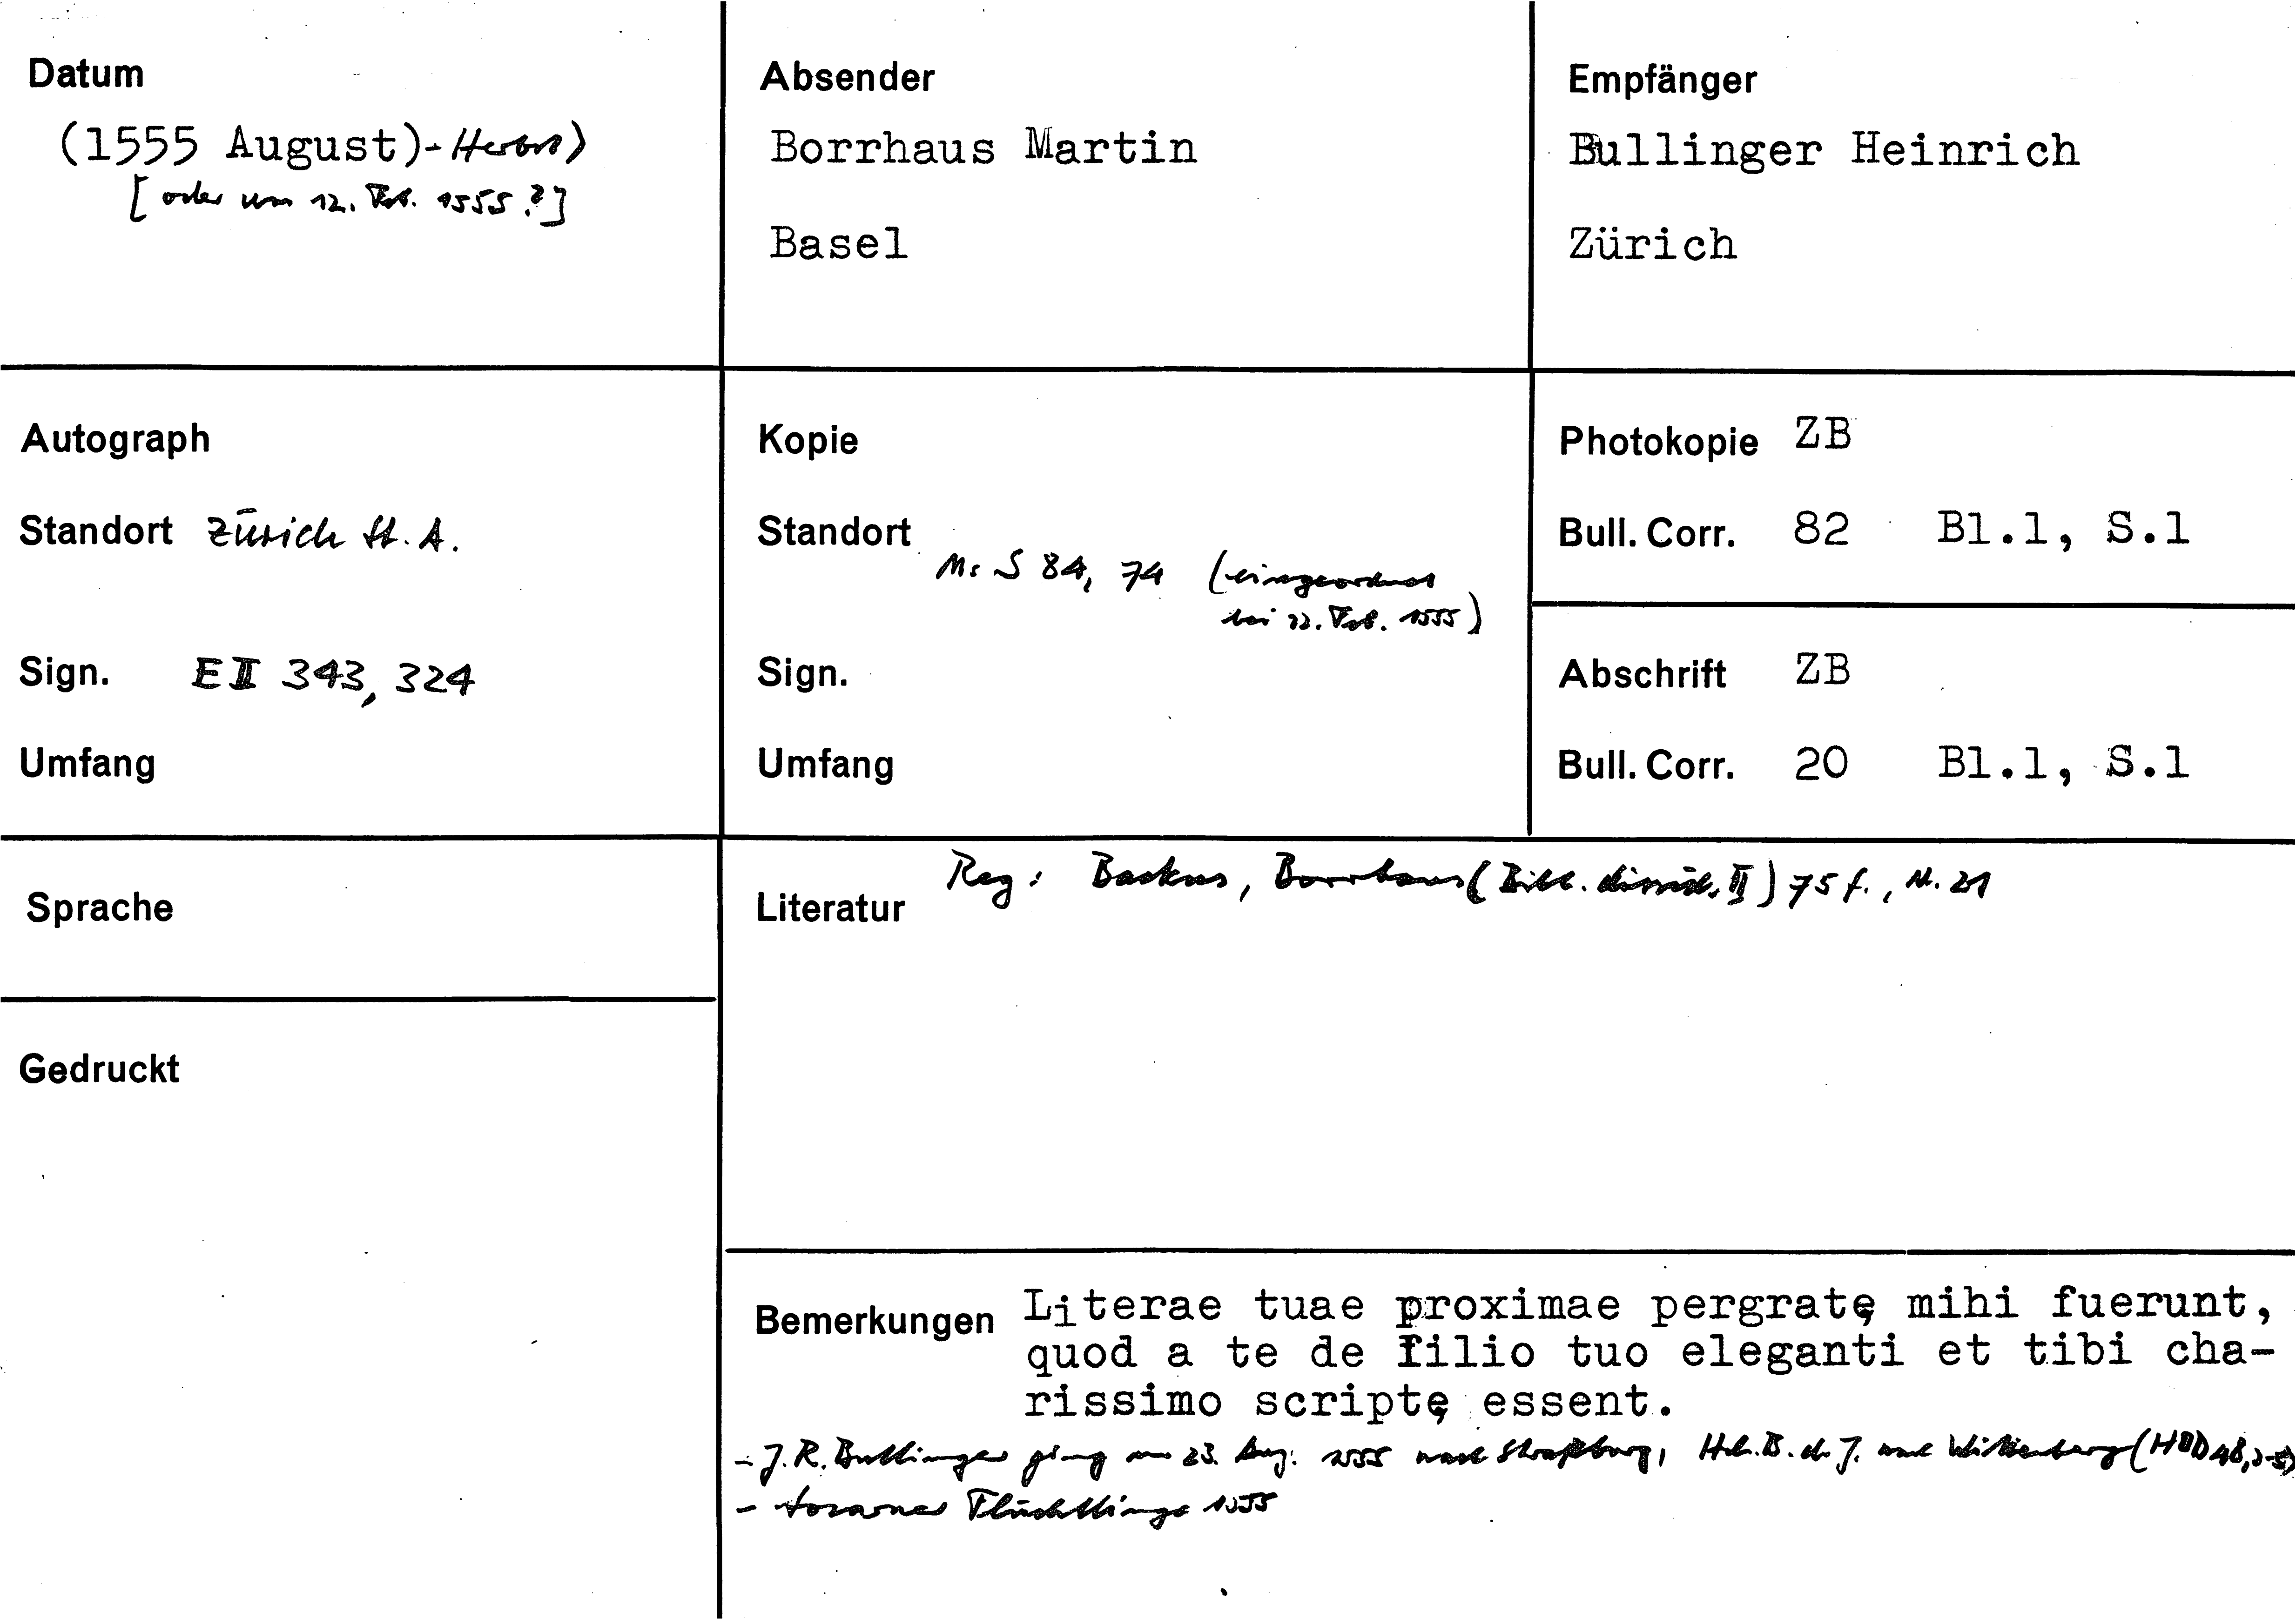 Datum
(1555 August)-Herbst)
[oder um 12. Feb. 1555?]
Absender
Borrhaus Martin
Basel
Empfänger
Bullinger Heinrich
Zürich
Autograph
Standort Zürich St. A.
Sign. E II 343, 324
Umfang
Kopie
Standort
Ms S 84, 74 (eingeordnet
bei 22. Feb. 1555)
Sign.
Umfang
Photokopie ZB
Bull. Corr. 82 Bl.1, S.1
Abschrift ZB
Bull. Corr. 20 Bl.1, S.1
Sprache
Gedruckt
Literatur Reg: Backus, Borrhaus (Bibl. dissid. II) 75 f., N. 21
Bemerkungen Literae tuae proximae pergratę mihi fuerunt,
quod a te de filio tuo eleganti et tibi cha-
rissimo scriptę essent.
- J. R. Bullinger ging am 23. Aug. 1555 nach Straßburg, Hch. B. d. J. nach Wittenberg (HBD 48,
- Flüchtlinge 1555